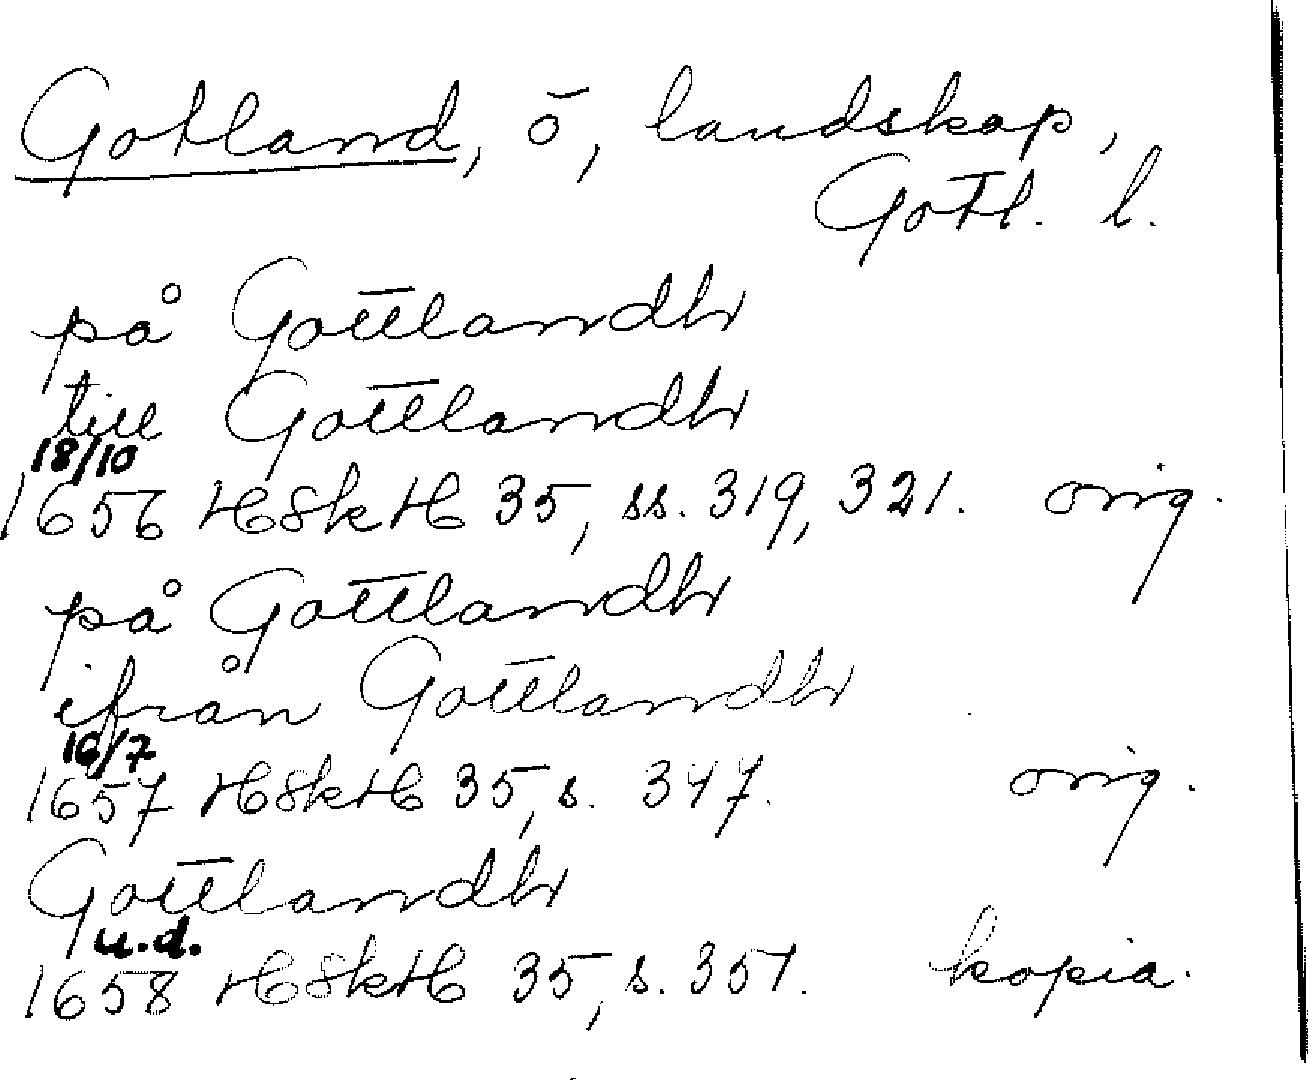 Gotland, ö, landskap,
Gotl. l.
på Gottlandh
till Gottlandh
18/10
1656 HSkH 35, ss. 319, 321. orig.
på Gottlandh
ifrån Gottlandh
16/7
1657 HSkH 35, s. 347. orig.
Gottlandh
u.d.
1658 HSkH 35, s. 351. kopia.